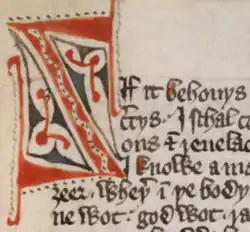 If it behouys
ctys · I schal co
ons ⁊ reuelac
I knowe a ma
ȝeer · wheþ̉ ī þe body
ne wot · god wot ·